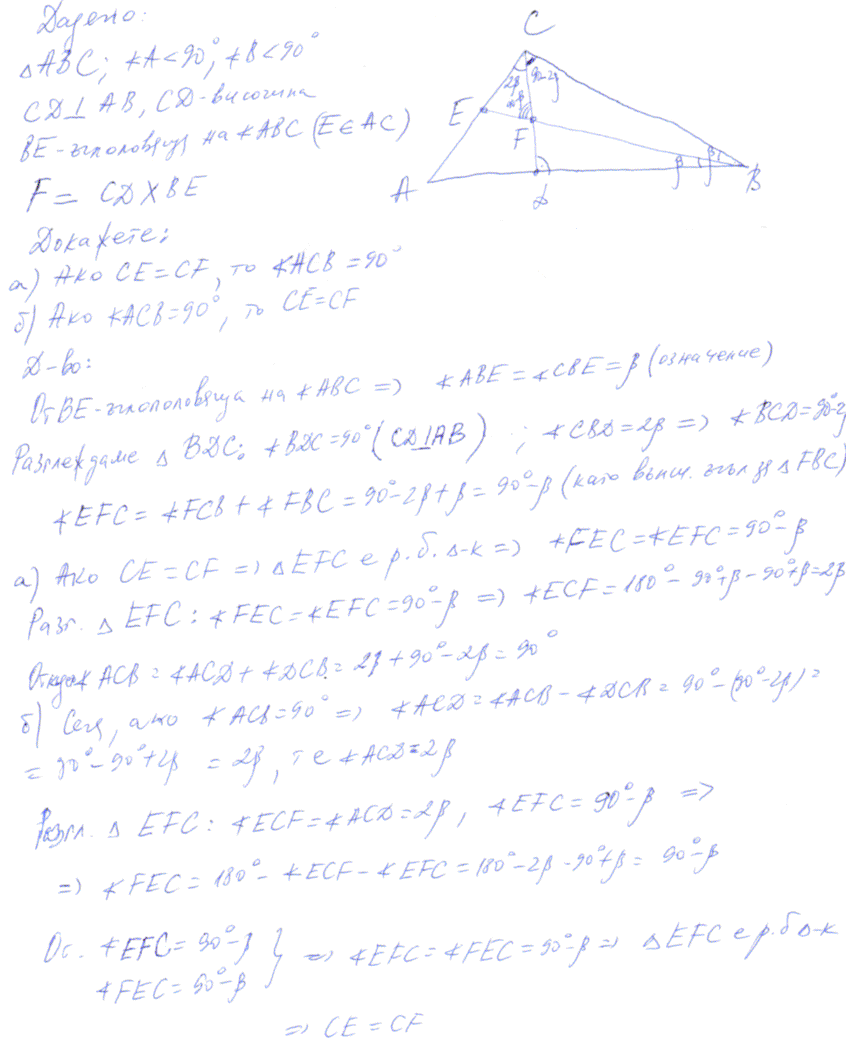 Дадено:
△ABC; ∢A<90°, ∢B<90°
CD⊥AB, CD-височина
BE-ъглополовящa на ∢ABC (E∈AC)
F = CD X BE
Докажете:
а) Ако CE=CF, то ∢ACB=90°
б) Ако ∢ACB=90°, то CE=CF
Д-во:
От BE-ъглополовяща на ∢ABC => ∢ABE=∢CBE=β (означение)
Разглеждаме △BDC: ∢BDC=90° (CD⊥AB); ∢CBD=2β => ∢BCD=90°-2β
∢EFC=∢FCB+∢FBC=90°-2β+β=90°-β (като външ. ъгъл за △FBC)
а) Ако CE=CF => △EFC е р.б. △-к => ∢FEC=∢EFC=90°-β
Разг. △EFC: ∢FEC=∢EFC=90°-β => ∢ECF=180°-90°+β-90°+β=2β
Откъде ∢ACB=∢ACD+∢DCB=2β+90°-2β=90°
б) Сега, ако ∢ACB=90° => ∢ACD=∢ACB-∢DCB=90°-(90°-2β)=
=90°-90°+2β=2β, т.е ∢ACD=2β
Разгл. △EFC: ∢ECF=∢ACD=2β, ∢EFC=90°-β =>
=> ∢FEC=180°-∢ECF-∢EFC=180°-2β-90°+β=90°-β
От. ∢EFC=90°-β } => ∢EFC=∢FEC=90°-β => △EFC е р.б △-к
∢FEC=90°-β
=> CE=CF
C
2β
90-2β
E
F
A
D
β
β
B